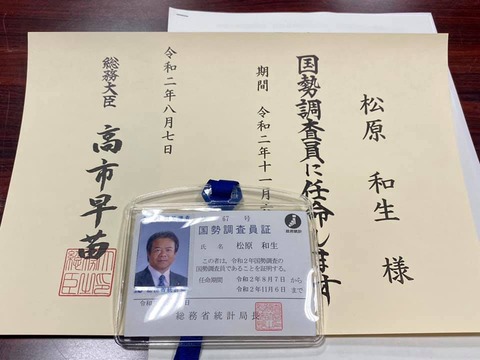 松原 和生 様
国勢調査員に任命します
期間 令和二年十一月六
令和二年八月七日
総務大臣
高市早苗
67号
国勢調査員証
政府統計
氏名 松原 和生
この者は、令和2年国勢調査の
国勢調査員であることを証明する。
任命期間 令和2年8月7日 から
令和2年11月6日 まで
総務省統計局長